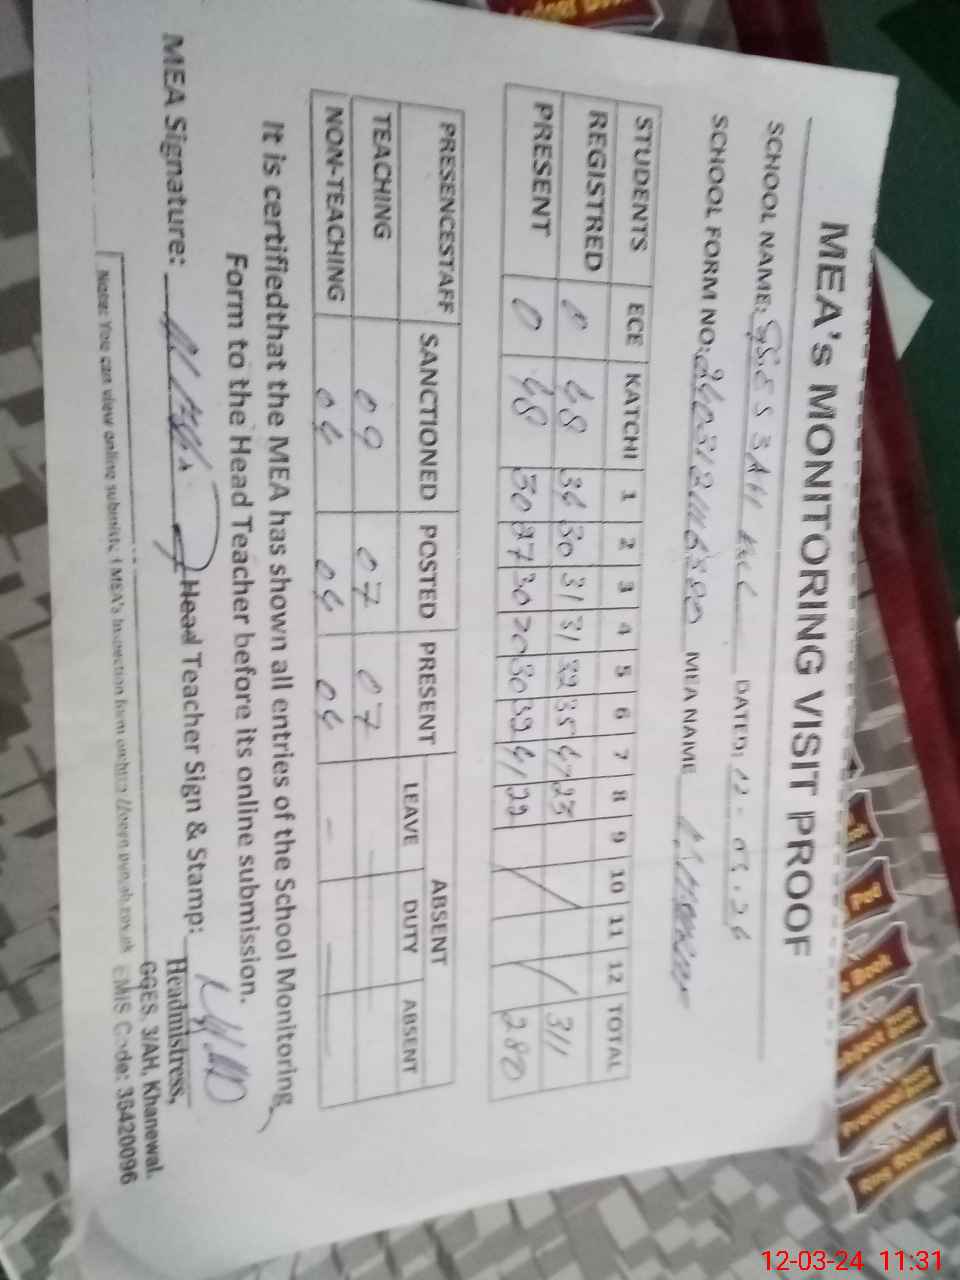 MEA's MONITORING VISIT PROOF
SCHOOL NAME: GGES 3AH DATED: 12-03-24
SCHOOL FORM NO: MEA NAME
STUDENTS ECE KATCHI 1 2 3 4 5 6 7 8 9 10 11 12 TOTAL
REGISTRED 0 48 34 30 31 31 32 35 47 23 311
PRESENT 0 48 30 27 30 20 30 32 41 22 280
PRESENCESTAFF SANCTIONED POSTED PRESENT ABSENT
LEAVE DUTY ABSENT
TEACHING 09 07 07
NON-TEACHING 04 04 04 -
It is certifiedthat the MEA has shown all entries of the School Monitoring
Form to the Head Teacher before its online submission.
MEA Signature: Head Teacher Sign & Stamp:
Headmistress,
GGES. 3/AH, Khanewal.
EMIS Code: 36420096
Note: You can view online submitted MEA's Inspection form
Book
Book
Rog Register
12-03-24 11:31